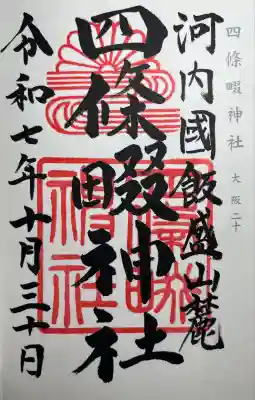 四條畷神社 大阪二十
河内國飯盛山麓
四條畷神社
令和七年十月三十日